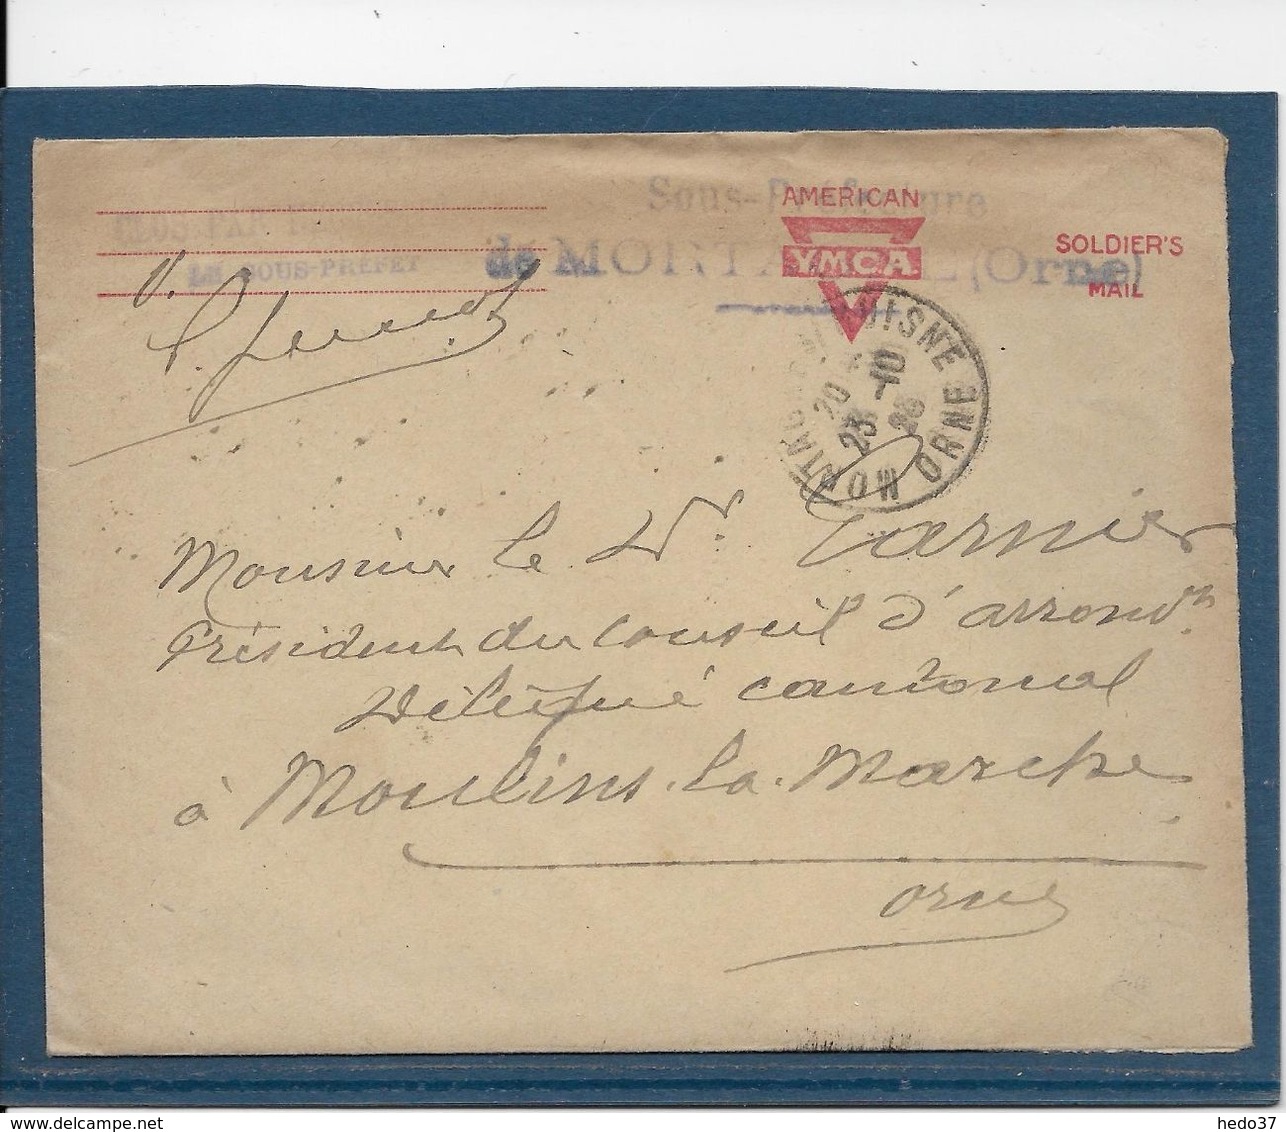 Sous-Préfecture
AMERICAN
CLOS PAR
de MORTAGNE (Orne)
YMCA
SOLDIER'S
MAIL
LE SOUS-PRÉFET
MORTAGNE HUISNE ORNE
20
10
23 -1
26
Monsieur le Dr. Garnier
Président du Conseil d'arrondt.
Délégué cantonal
à Moulins-la-Marche
Orne
www.delcampe.net
hedo37